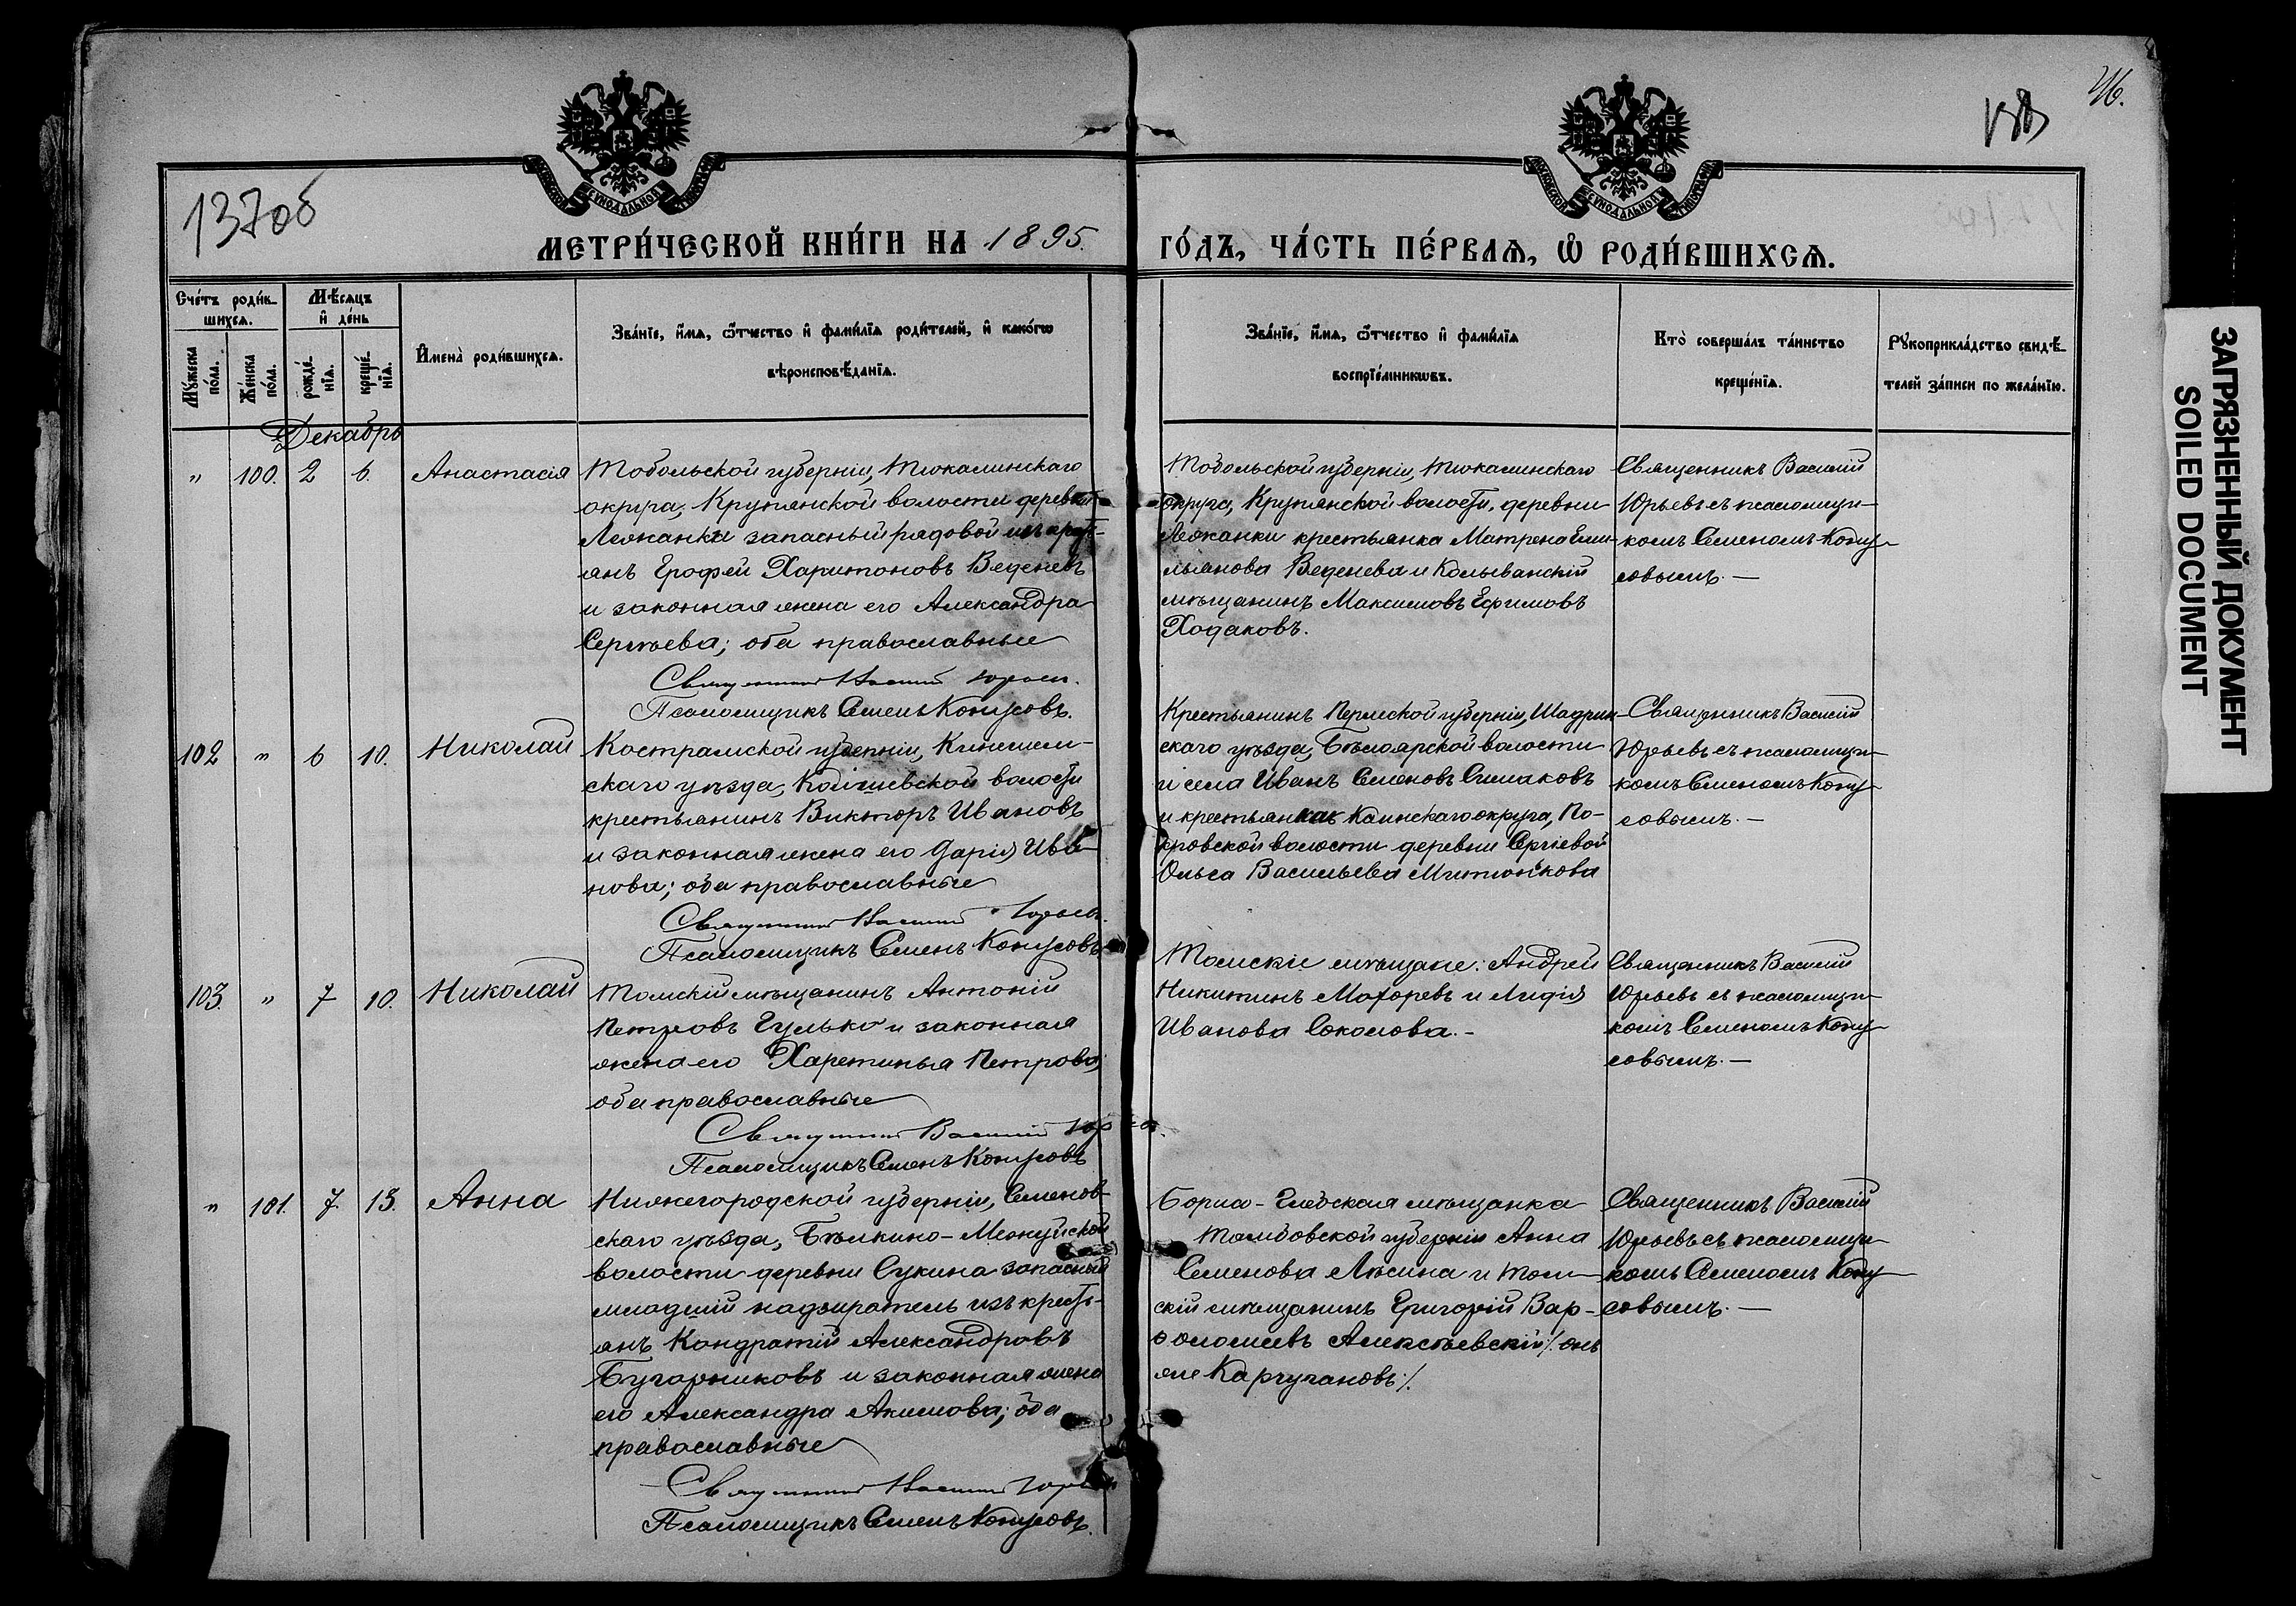 46.
137об
МЕТРИ́ЧЕСКОЙ КНИ́ГИ НА 1895.
ГО́ДЪ, ЧА́СТЬ ПЕ́РВАѦ, Ѽ РОДИ́ВШИХСѦ.
Сче́тъ роди́в-
шихсѧ.
Мѣ́сѧцъ
и҆ де́нь
Мꙋ́жеска
по́ла.
Же́нска
по́ла.
рожде́-
нїѧ.
креще́-
нїѧ.
И҆мена̀ роди́вшихсѧ.
Зва́нїе, и҆́мѧ, ѻ҆́тчество и҆ фами́лїѧ роди́телей, и҆ како́гѡ
вѣроисповѣ́данїѧ.
Зва́нїе, и҆́мѧ, ѻ҆́тчество и҆ фами́лїѧ
воспрїе́мникѡвъ.
Кто̀ соверша́лъ та́инство
креще́нїѧ.
Рꙋкоприкла́дство свидѣ́-
телей за́писи по жела́нїю.
Декабрь
" 100. 2 6. Анастасія
Тобольской губерніи, Тюкалинскаго
округа, Крутинской волости деревни
Лежанки запасный рядовой изъ кресть-
янъ Ерофей Харитоновъ Веденевъ
и законная жена его Александра
Сергѣева; оба православные
Священникъ Василій Юрьевъ.
Псаломщикъ Семенъ Конусовъ.
Тобольской губерніи, Тюкалинскаго
округа, Крутинской волости, деревни
Лежанки крестьянка Матрена Еми-
льянова Веденева и Колыванскій
мѣщанинъ Максимовъ Ефимовъ
Ходаковъ.
Священникъ Василій
Юрьевъ съ псаломщи-
комъ Семеномъ Кону-
совымъ. —
102 " 6 10. Николай
Костромской губерніи, Кинешем-
скаго уѣзда, волости
крестьянинъ Викторъ Ивановъ
и законная жена его Дарія Ива-
нова; оба православные
Священникъ Василій Юрьевъ.
Псаломщикъ Семенъ Конусовъ
Крестьянинъ Пермской губерніи, Шадрин-
скаго уѣзда, Бѣлоярской волости
и села Иванъ Семеновъ Симаковъ
и крестьянка Каинскаго округа, По-
кровской волости деревни Сергіевой
Ольга Васильева Митюнкова
Священникъ Василій
Юрьевъ съ псаломщи-
комъ Семеномъ Кону-
совымъ. —
103. " 7 10. Николай
Томскій мѣщанинъ Антоній
Петровъ Гулько и законная
жена его Харетинья Петрова;
оба православные
Священникъ Василій Юрьевъ.
Псаломщикъ Семенъ Конусовъ
Томскіе мѣщане: Андрей
Никитинъ Махоревъ и Лидія
Иванова Соколова. -
Священникъ Василій
Юрьевъ съ псаломщи-
комъ Семеномъ Кону-
совымъ. —
" 101. 7. 13. Анна
Нижегородской губерніи, Семенов-
скаго уѣзда,
волости деревни Сукина запасный
младшій надзиратель изъ кресть-
янъ Кондратій Александровъ
Бугорниковъ и законная жена
его Александра Акимова; оба
православные
Священникъ Василій Юрьевъ
Псаломщикъ Семенъ Конусовъ.
Борисо-Глебская мѣщанка
Тамбовской губерніи Анна
Семенова Лѣсина и Том-
скій мѣщанинъ Григорій Вар-
ѳоломеевъ Алексѣевскій /. онъ
же Карчугановъ /.
Священникъ Василій
Юрьевъ съ псаломщи-
комъ Семеномъ Кону-
совымъ. —
ЗАГРЯЗНЕННЫЙ ДОКУМЕНТ
SOILED DOCUMENT